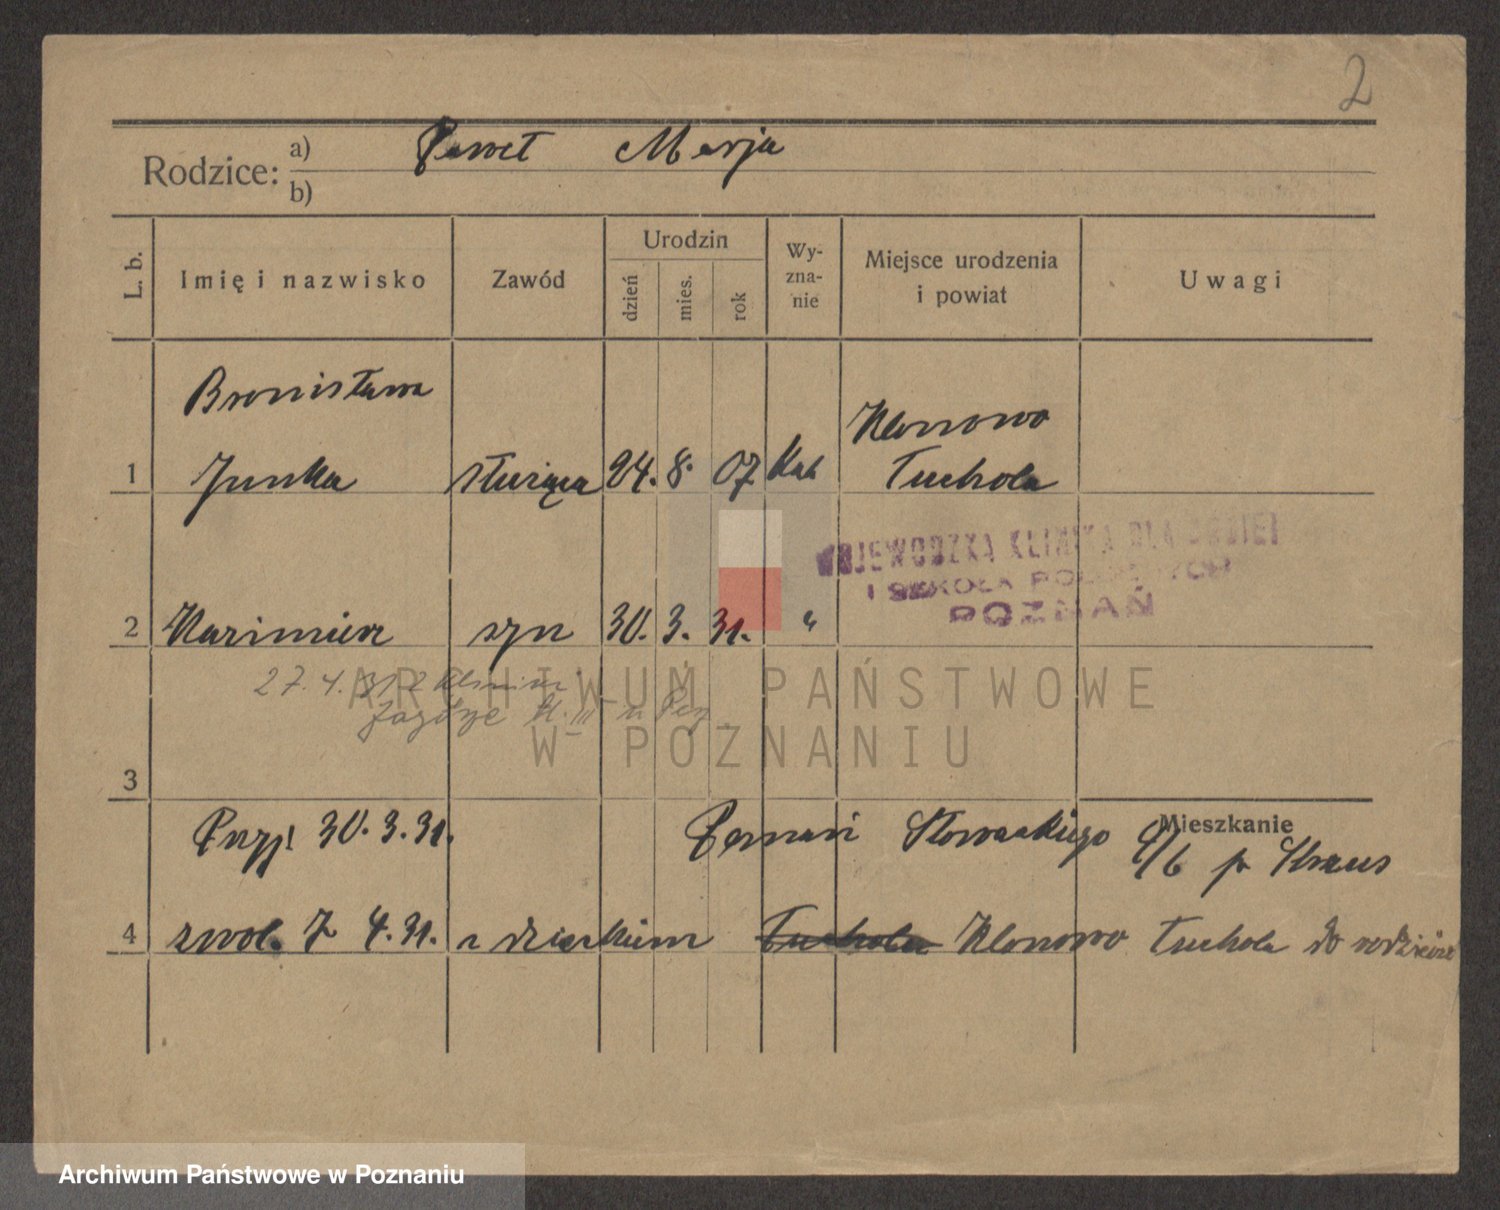 2
Rodzice: a) Paweł Marja
b)
L. b. Imię i nazwisko Zawód Urodzin dzień mies. rok Wy-zna-nie Miejsce urodzenia i powiat Uwagi
Bronisława Klonowo
1 Junka służąca 24. 8. 07 Kat Tuchola
WOJEWÓDZKA KLINIKA DLA KOBIET
I SZKOŁA POŁOŻNYCH
POZNAŃ
2 Kazimierz syn 30. 3. 31. "
27. 4. 31
ARCHIWUM PAŃSTWOWE
W POZNANIU
3
Mieszkanie
Przyj. 30. 3. 31. Poznań Słowackiego p. Straus
4 zwol. 7 4. 31. z dzieckiem Tuchola Klonowo Tuchola do rodziców
Archiwum Państwowe w Poznaniu